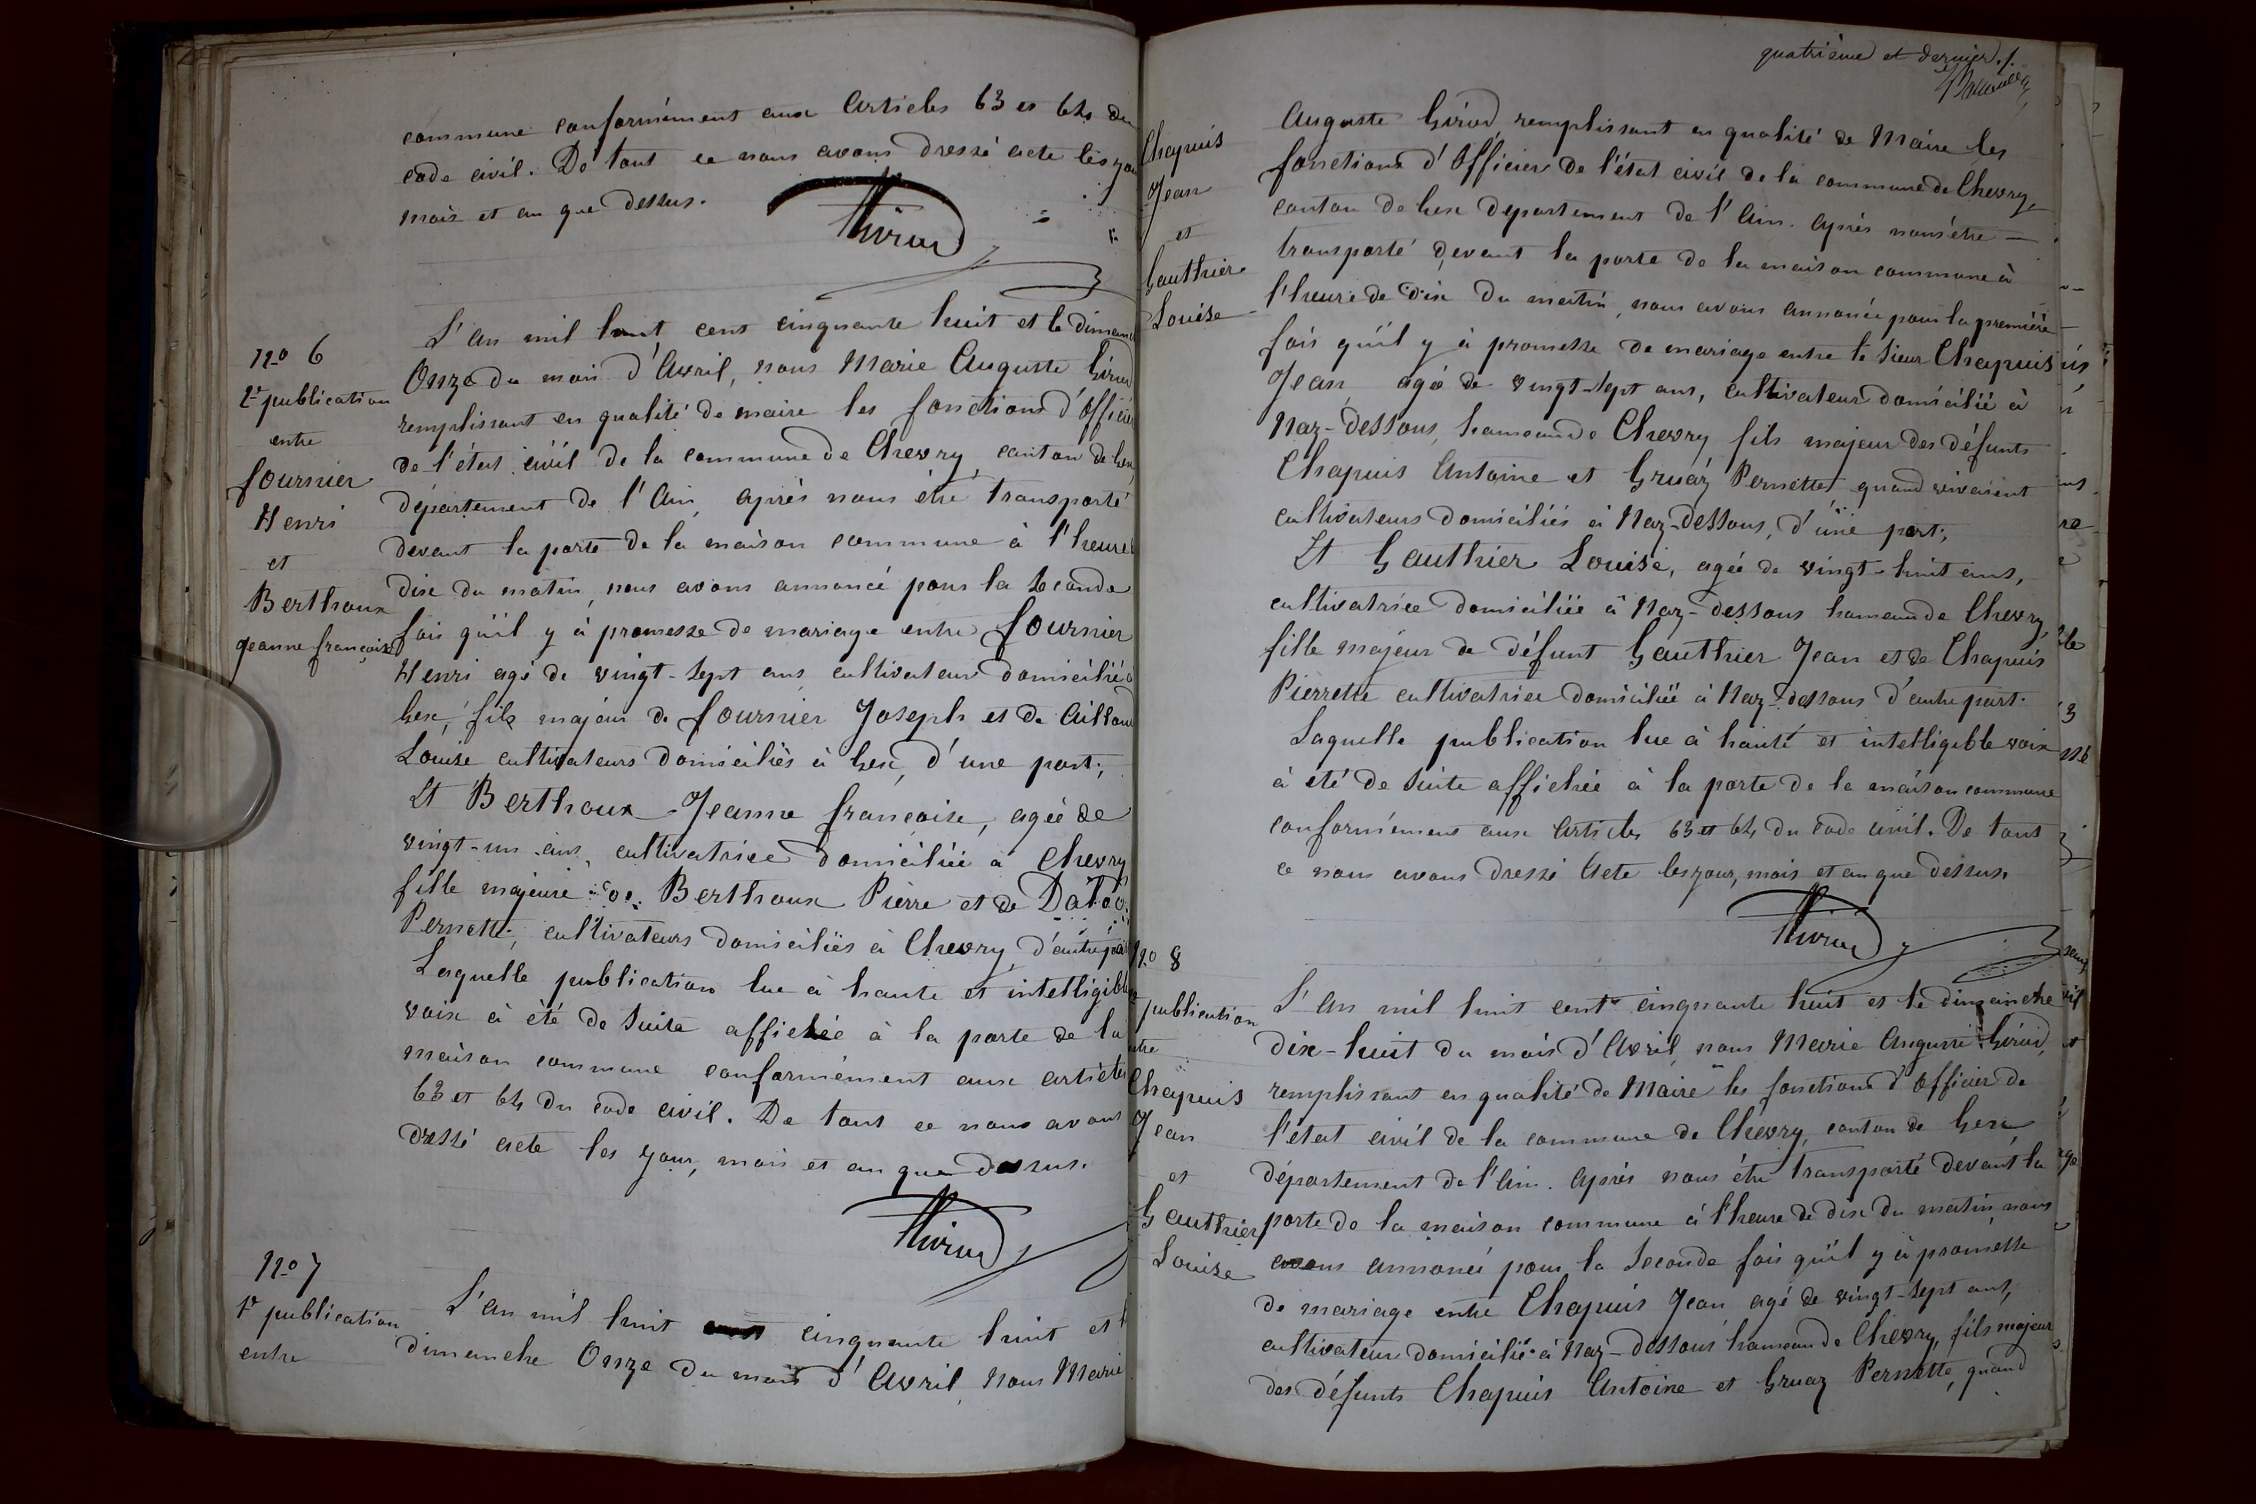 commune conformément aux Articles 63 et 64 du
code civil. De tout ce nous avons dressé acte les jour
mois et an que dessus.
Girod
nº 6
2e publication
entre
fournier
Henri
et
Berthoux
Jeanne françoise
L'an mil huit cent cinquante huit et le dimanche
Onze du mois d'Avril, nous Marie Auguste Girod
remplissant en qualité de maire les fonctions d'officier
de l'état civil de la commune de Chevry, canton de Gex,
département de l'Ain, après nous être transporté
devant la porte de la maison commune à l'heure
dix du matin, nous avons annoncé pour la seconde
fois qu'il y à promesse de mariage entre fournier
Henri agé de vingt-sept ans cultivateur domicilié à
Gex, fils majeur de fournier Joseph et de
Louise cultivateurs domiciliés à Gex, d'une part;
Et Berthoux Jeanne françoise, agée de
vingt-un ans, cultivatrice domiciliée à Chevry
fille majeure de Berthoux Pierre et de
Pernette, cultivateurs domiciliés à Chevry, d'autre part
Laquelle publication lue à haute et intelligible
voix à été de suite affichée à la porte de la
maison commune conformément aux articles
63 et 64 du code civil. De tout ce nous avons
dressé acte les jour, mois et an que dessus.
Girod
nº 7
1e publication
entre
L'an mil huit cinquante huit et le
dimanche Onze du mois d'Avril, nous Marie
quatrième et dernier.
Chapuis
Jean
et
Gauthier
Louise
Auguste Girod, remplissant en qualité de Maire les
fonctions d'Officier de l'état civil de la commune de Chevry,
canton de Gex departement de l'Ain. après nous être
transporté devant la porte de la maison commune à
l'heure de dix du matin, nous avons annoncé pour la première
fois qu'il y à promesse de mariage entre le sieur Chapuis
Jean, agé de vingt-sept ans, cultivateur domicilié à
Naz-dessous, hameau de Chevry, fils majeur des défunts
Chapuis Antoine et Gruaz Pernette, quand vivaient
cultivateurs domiciliés à Naz-dessous, d'une part;
Et Gauthier Louise, agée de vingt-huit ans,
cultivatrice domiciliée à Naz-dessous hameau de Chevry,
fille majeur de défunt Gauthier Jean et de Chapuis
Pierrette cultivatrice domiciliée à Naz-dessous d'autre part.
Laquelle publication lue à haute et intelligible voix
à été de suite affichée à la porte de la maison commune
conformément aux articles 63 et 64 du code civil. De tout
ce nous avons dressé Acte les jour, mois et an que dessus.
Girod
nº 8
publication
entre
Chapuis
Jean
et
Gauthier
Louise
L'an mil huit cent cinquante huit et le dimanche
dix-huit du mois d'Avril, nous Marie Auguste Girod,
remplissant en qualité de Maire les fonctions d'officier de
l'état civil de la commune de Chevry, canton de Gex
département de l'Ain. après nous être transporté devant la
porte de la maison commune à l'heure de dix du matin, nous
avons annoncé pour la seconde fois qu'il y à promesse
de mariage entre Chapuis Jean agé de vingt-sept ans,
cultivateur domicilié à Naz-dessous hameau de Chevry, fils majeur
des défunts Chapuis Antoine et Gruaz Pernette, quand